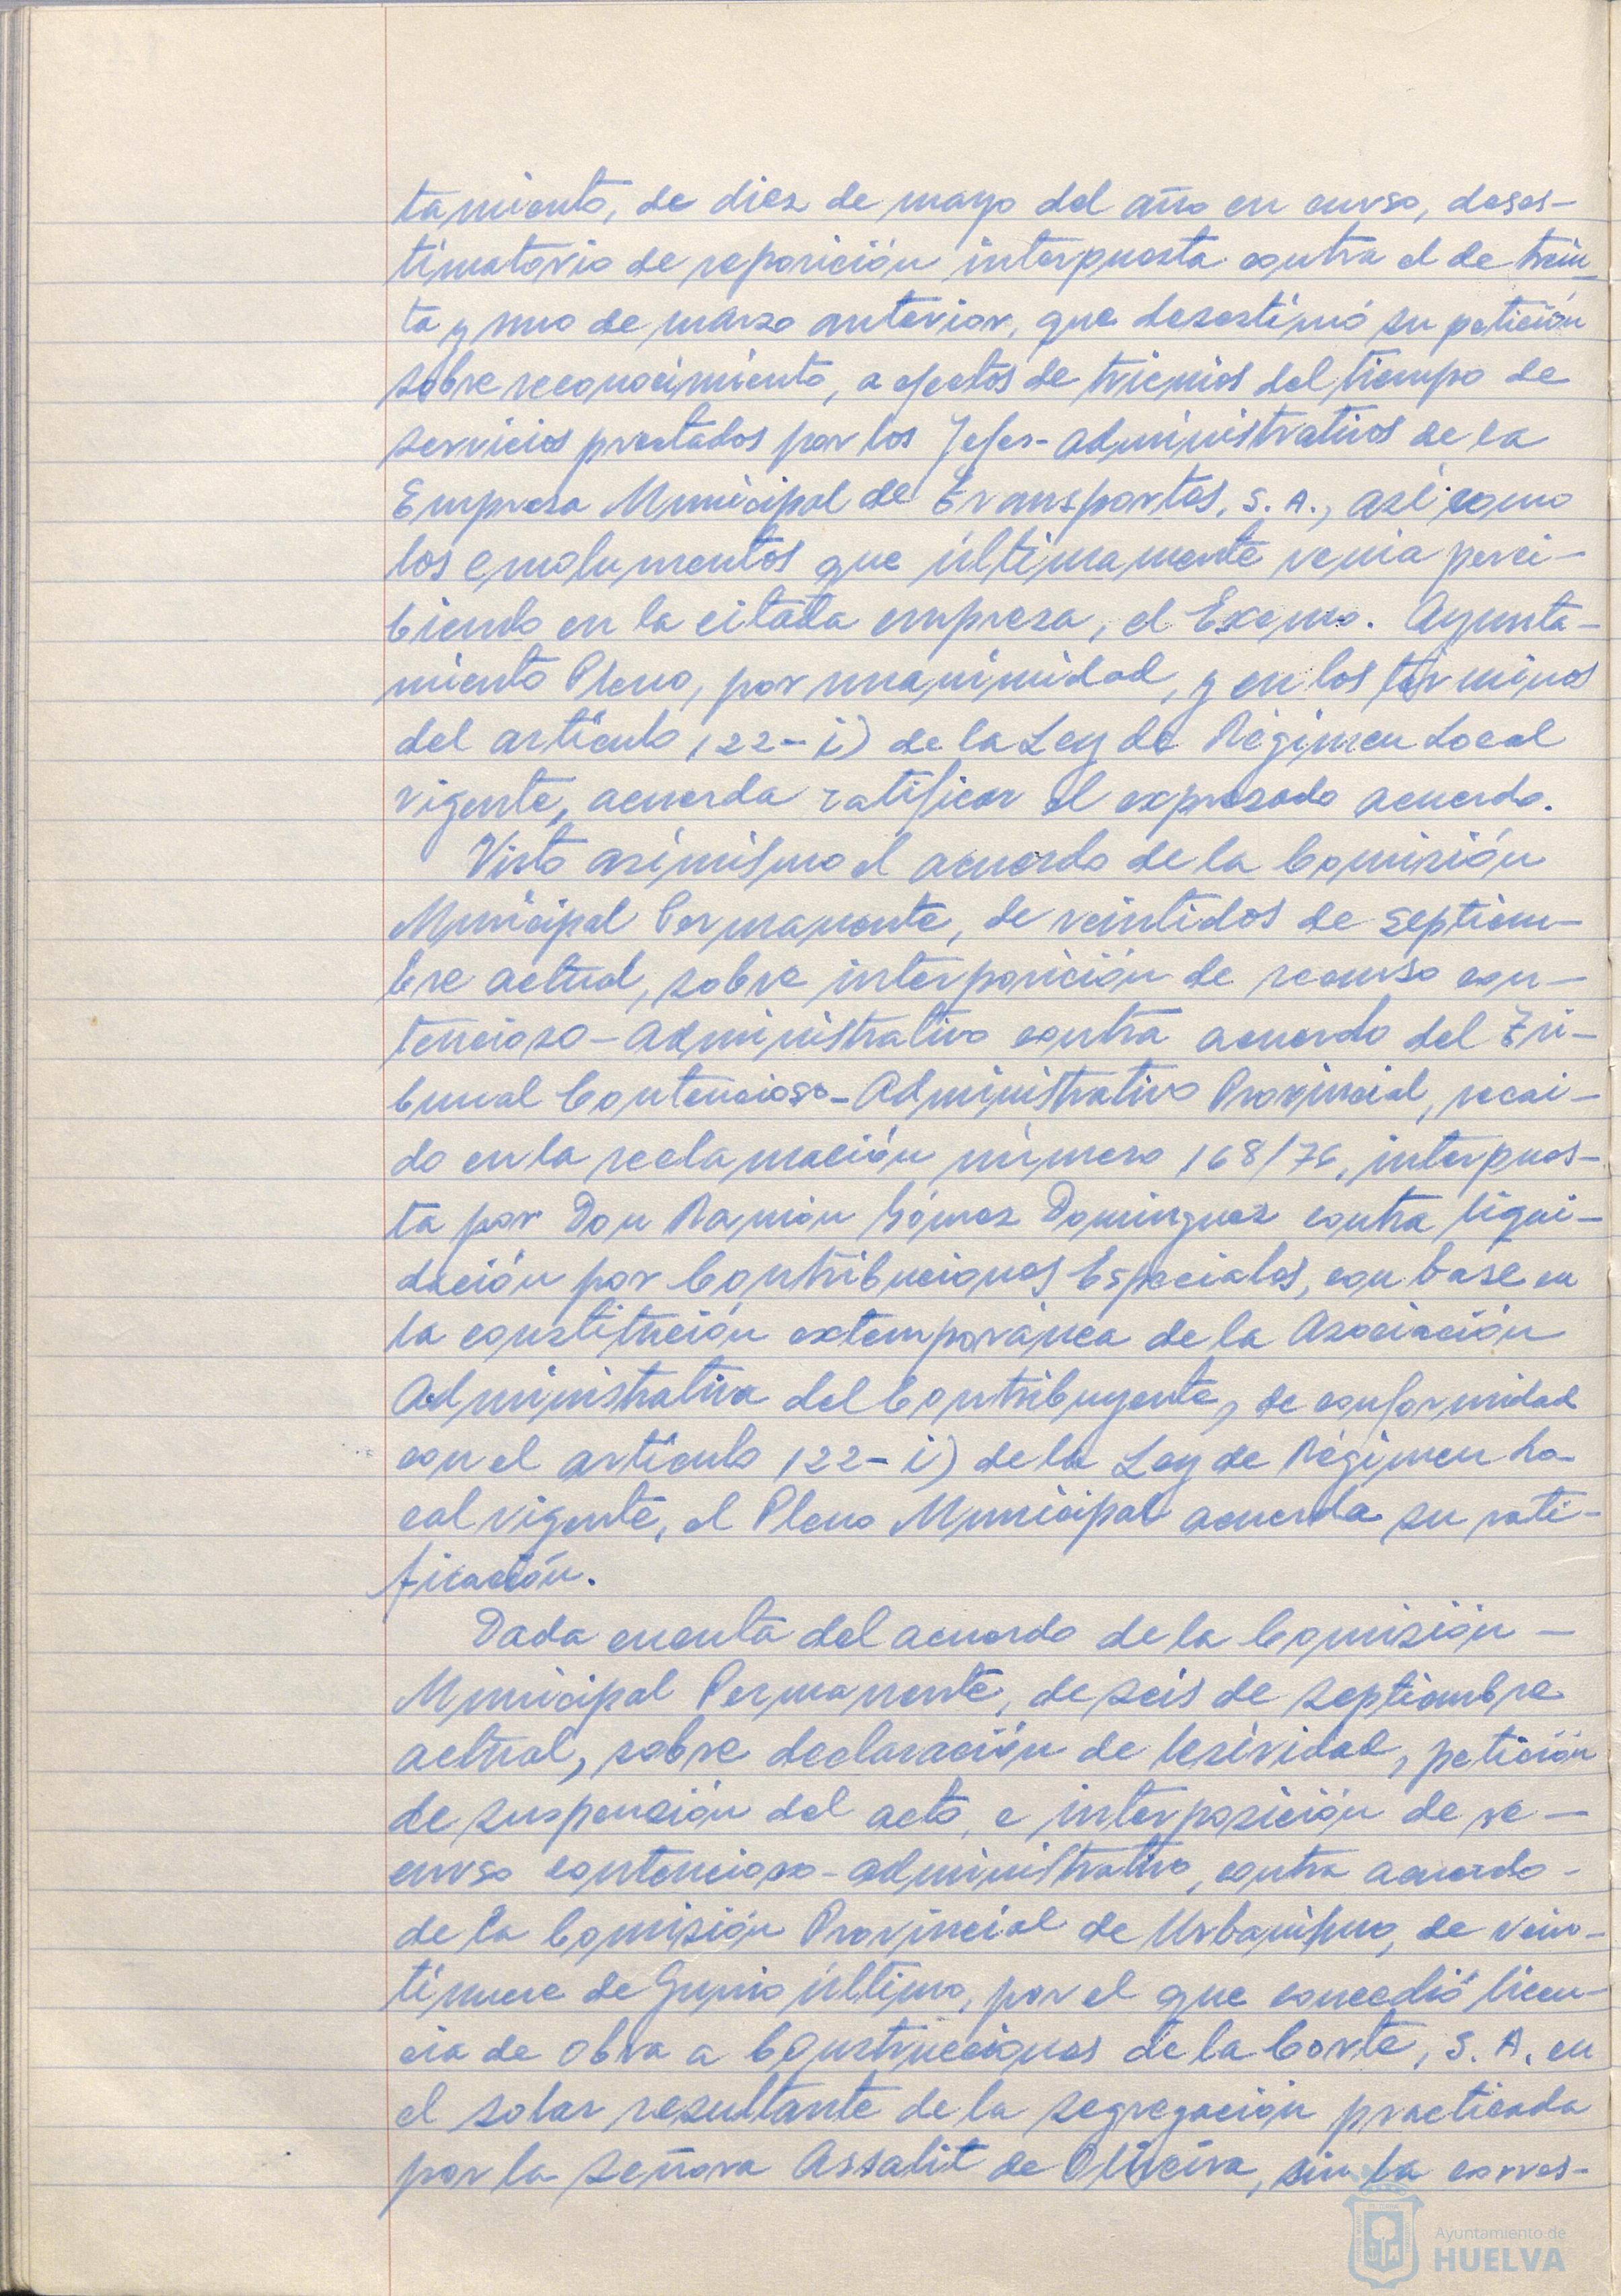 tamiento, de diez de mayo del año en curso, deses-
timatorio de reposición interpuesta contra el de trein-
ta y uno de marzo anterior, que desestimó su petición
sobre reconocimiento, a efectos de trienios del tiempo de
servicios prestados por los Jefes-administrativos de la
Empresa Municipal de Transportes, S. A., así como
los emolumentos que últimamente venia perci-
biendo en la citada empresa, el Excmo. Ayunta-
miento Pleno, por unanimidad, y en los términos
del artículo 122-i) de la Ley de Régimen Local
vigente, acuerda ratificar el expresado acuerdo.
Visto asímismo el acuerdo de la Comisión
Municipal Permanente, de veintidos de septiem-
bre actual, sobre interposición de recurso con-
tencioso-administrativo contra acuerdo del Tri-
bunal Contencioso-Administrativo Provincial, recai-
do en la reclamación número 168/76, interpues-
ta por Don Ramón Gómez Dominguez contra liqui-
dación por Contribuciones Especiales, con base en
la constitución extemporánea de la Asociación
Administrativa del Contribuyente, de conformidad
con el artículo 122-i) de la Ley de Régimen Lo-
cal vigente, el Pleno Municipal acuerda su rati-
ficación.
Dada cuenta del acuerdo de la Comisión -
Municipal Permanente, de seis de septiembre
actual, sobre declaración de lesividad, petición
de suspensión del acto, e interposición de re-
curso contencioso-administrativo, contra acuerdo-
de la Comisión Provincial de Urbanismo, de vein-
tinueve de Junio último, por el que concedió licen-
cia de obra a Construcciones de la Corte, S. A. en
el solar resultante de la segregación practicada
por la señora Assalit de Oliveira, sin la corres-
Ayuntamiento de
HUELVA